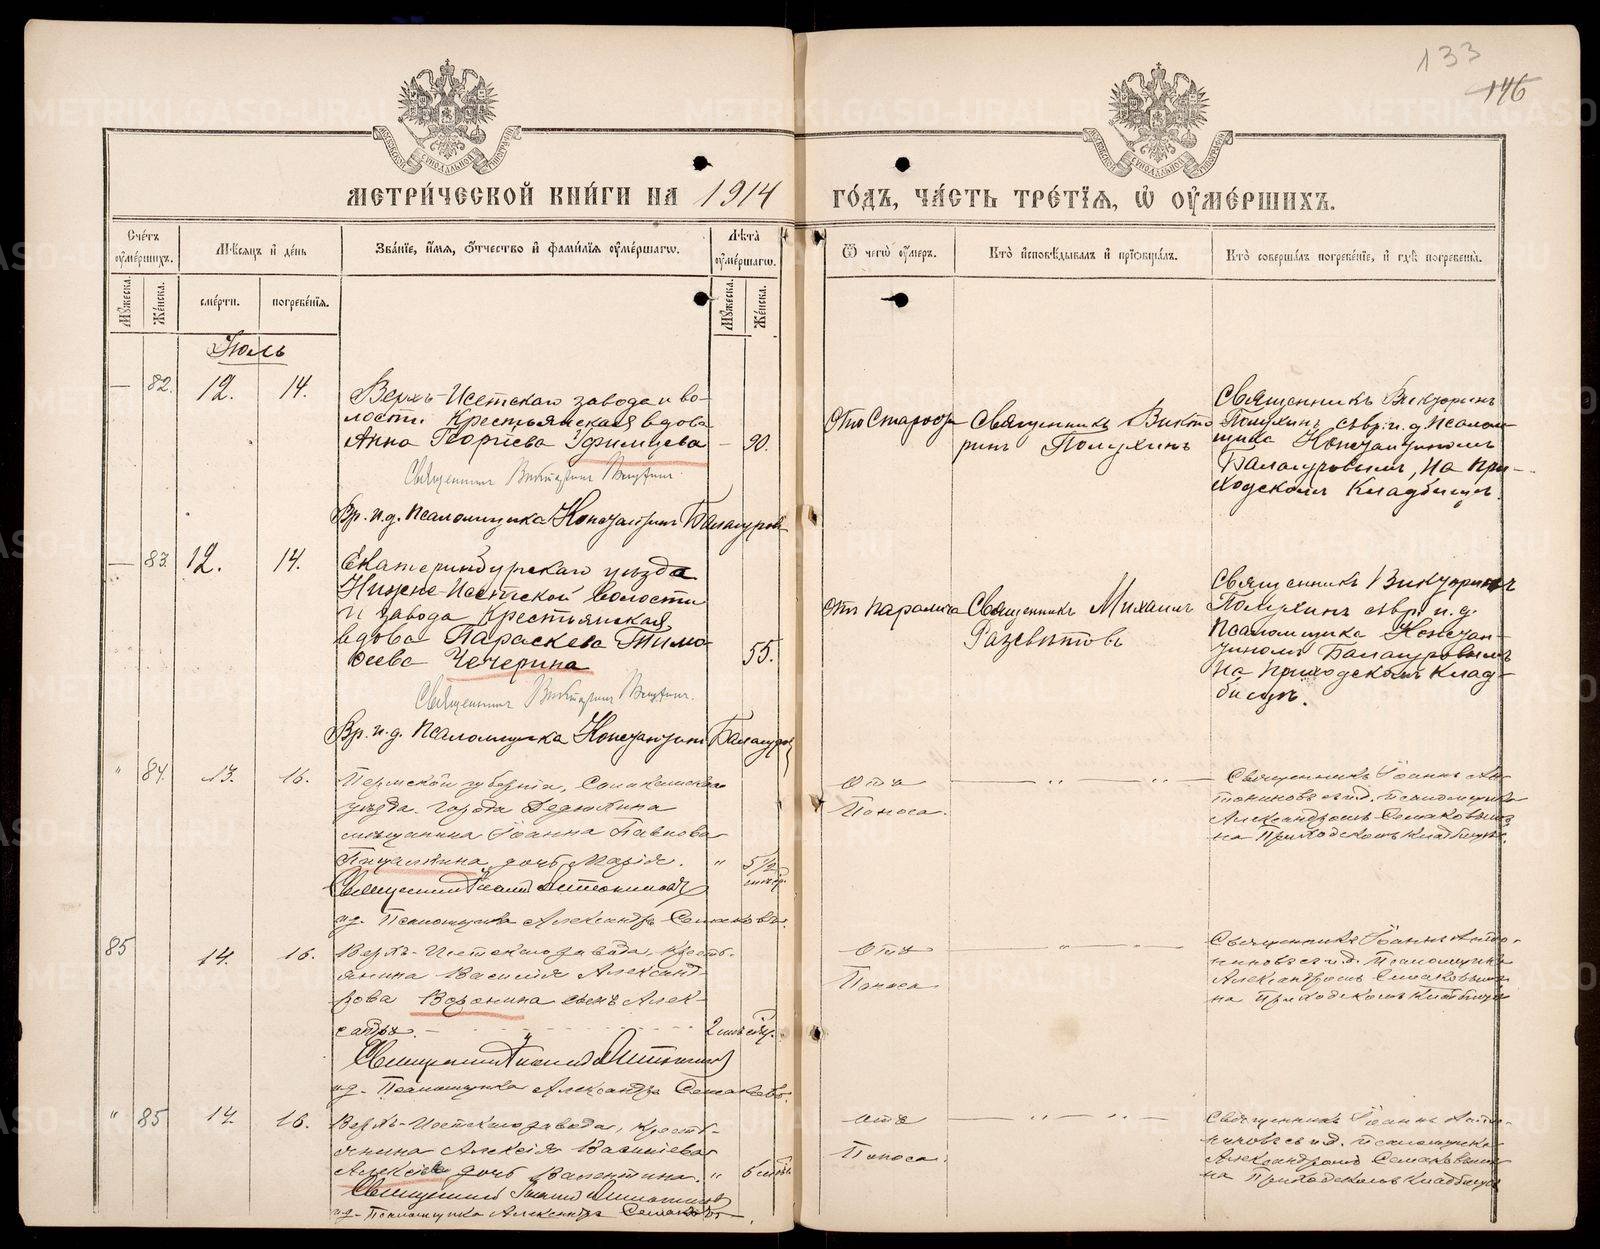 133
146
МЕТРИ́ЧЕСКОЙ КНИ́ГИ НА 1914 ГО́ДЪ, ЧА́СТЬ ТРЕ́ТІЯ, Ѡ ОУ҆МЕ́РШИХЪ.
Сче́тъ оу҆ме́ршихъ.
Мѣ́сяцъ и҆ де́нь
Зва́нїе, и҆́мя, ѻ҆́тчество и҆ фами́лїя оу҆ме́ршагѡ.
Лѣ́та оу҆ме́ршагѡ.
Ѿ чегѡ̀ оу҆́меръ.
Кто̀ и҆сповѣ́дывалъ и҆ прїѡбща́лъ.
Кто̀ соверша́лъ погребе́нїе, и҆ гдѣ̀ погребены̀.
Мꙋ́жеска.
Же́нска.
сме́рти.
погребе́нїя.
Мꙋ́жеска.
Же́нска.
Іюль
— 82. 12. 14.
Верхъ-Исетскаго завода и во-
лости Крестьянская вдова
Анна Георгіева Уфимцева — 90.
Священникъ Викторинъ Полухинъ
Вр. и.д. Псаломщика Констант​инъ Балакуровъ
Отъ Старости
Священникъ Викто
ринъ Полухинъ
Священникъ Викторинъ
Полухинъ съ вр. и.д. Псалом-
щика Константиномъ
Балакуровымъ, на при-
ходскомъ Кладбищѣ.
— 83. 12. 14.
Екатеринбургскаго уѣзда
Нижне-Исетской волости
и завода Крестьянская
вдова Параскева Тимо
ѳеева Чечерина 55.
Священникъ Викторинъ Полухинъ
Вр. и.д. Псаломщика Константинъ Балакуровъ
Отъ паралича
Священникъ Михаилъ
Разсвѣтовъ
Священникъ Викторинъ
Полухинъ съ вр. и.д.
Псаломщика Констан-
тиномъ Балакуровымъ
на приходскомъ Клад-
бищѣ.
" 84. 13. 16.
Пермской губерніи, Соликамскаго
уѣзда города Дедюхина
мѣщанина Іоанна Павлова
Пищалкина дочь Марія. " 5 1/2
Священникъ Іоаннъ Антониновъ
и.д. Псаломщика Александръ Семаковъ.
Отъ
Поноса.
Священникъ Іоаннъ Ан-
тониновъ съ и.д. псаломщика
Александромъ Семаковымъ
на Приходскомъ кладбищѣ.
85 14. 16.
Верхъ-Исетскаго завода, кресть-
янина Василія Александ-
рова Воронина сынъ Алек-
сандръ. 2
Священникъ Іоаннъ Антониновъ
и.д. Псаломщика Александръ Семаковъ.
Отъ
Поноса
Священникъ Іоаннъ Анто-
ниновъ съ и.д. Псаломщика
Александромъ Семаковымъ
на Приходскомъ кладбищѣ
" 85 14. 16.
Верхъ-Исетскаго завода, кресть-
янина Алексія Василіева
дочь Валентина. " 6
Священникъ Іоаннъ Антониновъ
и.д. Псаломщика Александръ Семаковъ.
Отъ
Поноса.
Священникъ Іоаннъ Анто-
ниновъ съ и.д. псаломщика
Александромъ Семаковымъ
на Приходскомъ кладбищѣ
METRIKI.GASO-URAL.RU